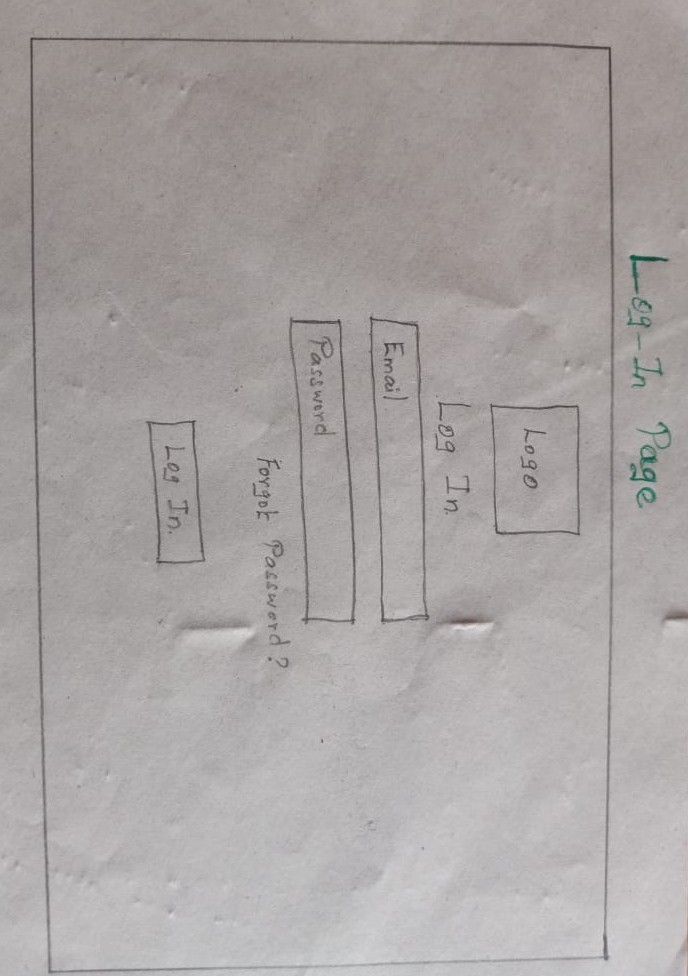 Log-In Page
Logo
Log In.
Email.
Password
Forgot Password?
Log In.